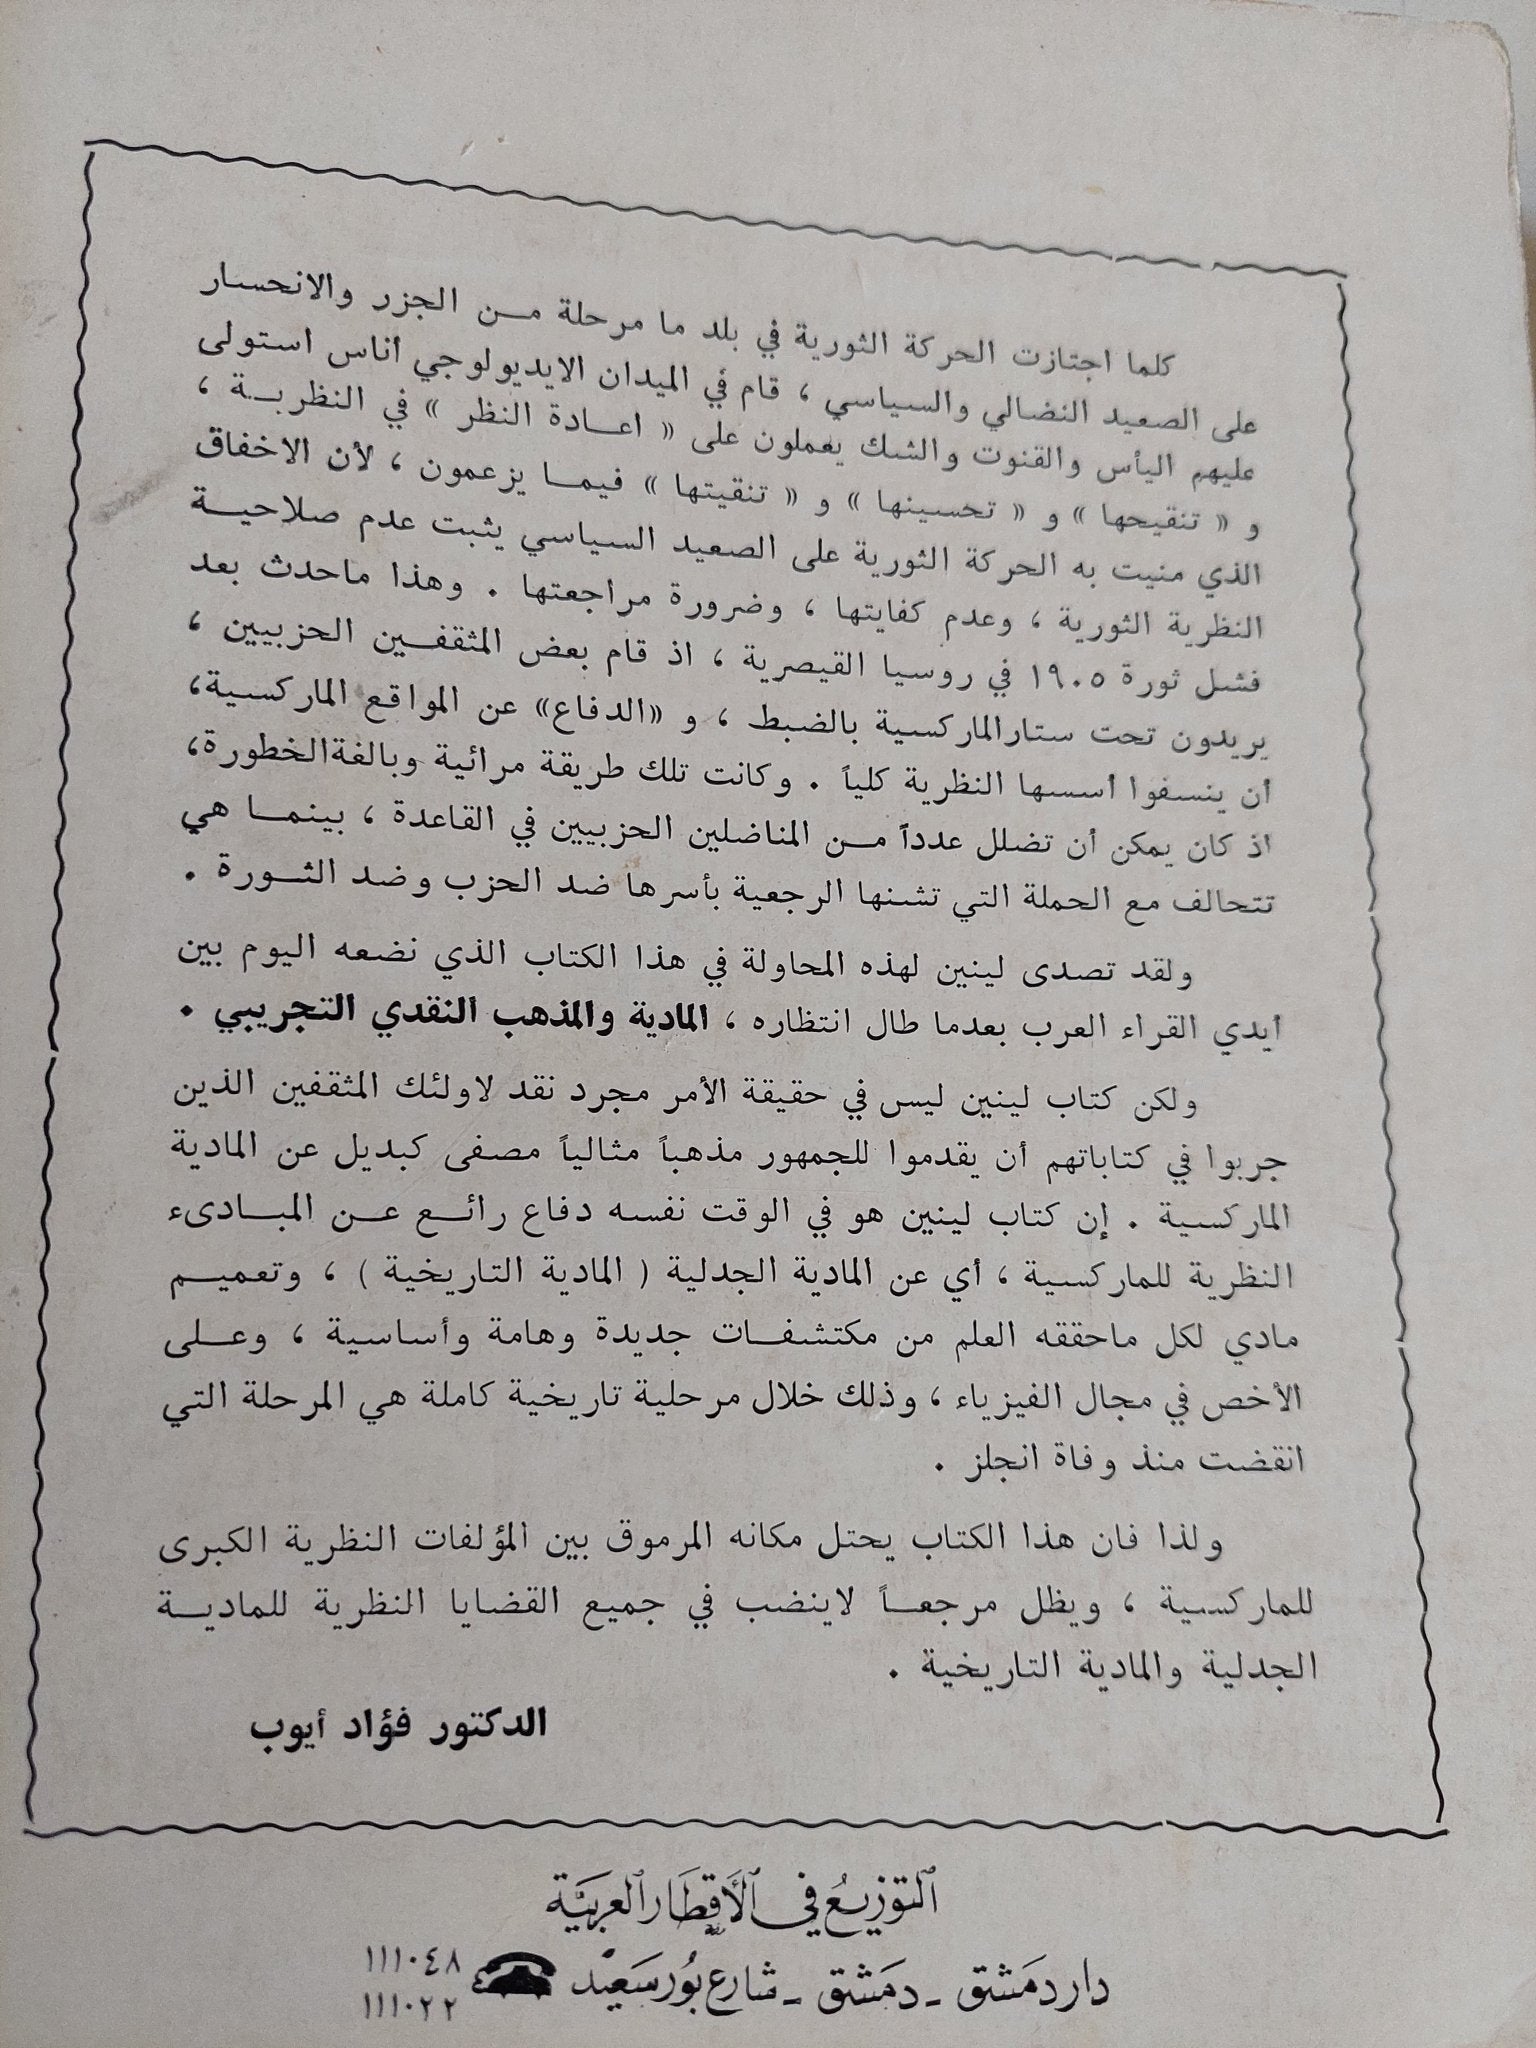 كلما اجتازت الحركة الثورية في بلد ما مرحلة من الجزر والانحسار
على الصعيد النضالي والسياسي ، قام في الميدان الايديولوجي أناس استولى
عليهم اليأس والقنوت والشك يعملون على « اعادة النظر » في النظرية ،
و « تنقيحها » و « تحسينها » و « تنقيتها » فيما يزعمون ، لأن الاخفاق
الذي منيت به الحركة الثورية على الصعيد السياسي يثبت عدم صلاحية
النظرية الثورية ، وعدم كفايتها ، وضرورة مراجعتها . وهذا ماحدث بعد
فشل ثورة ١٩٠٥ في روسيا القيصرية ، اذ قام بعض المثقفين الحزبيين ،
يريدون تحت ستارالماركسية بالضبط ، و «الدفاع» عن المواقع الماركسية،
أن ينسفوا أسسها النظرية كلياً . وكانت تلك طريقة مرائية وبالغةالخطورة،
اذ كان يمكن أن تضلل عدداً من المناضلين الحزبيين في القاعدة ، بينما هي
تتحالف مع الحملة التي تشنها الرجعية بأسرها ضد الحزب وضد الثورة .
ولقد تصدى لينين لهذه المحاولة في هذا الكتاب الذي نضعه اليوم بين
أيدي القراء العرب بعدما طال انتظاره ، المادية والمذهب النقدي التجريبي .
ولكن كتاب لينين ليس في حقيقة الأمر مجرد نقد لاولئك المثقفين الذين
جربوا في كتاباتهم أن يقدموا للجمهور مذهباً مثالياً مصفى كبديل عن المادية
الماركسية . إن كتاب لينين هو في الوقت نفسه دفاع رائع عن المبادىء
النظرية للماركسية ، أي عن المادية الجدلية ( المادية التاريخية ) ، وتعميم
مادي لكل ماحققه العلم من مكتشفات جديدة وهامة وأساسية ، وعلى
الأخص في مجال الفيزياء ، وذلك خلال مرحلية تاريخية كاملة هي المرحلة التي
انقضت منذ وفاة انجلز .
ولذا فان هذا الكتاب يحتل مكانه المرموق بين المؤلفات النظرية الكبرى
للماركسية ، ويظل مرجعاً لاينضب في جميع القضايا النظرية للمادية
الجدلية والمادية التاريخية .
الدكتور فؤاد أيوب
التوزيع في الأقطار العربية
دار دمشق - دمشق - شارع بور سعيد ١١١٠٤٨
١١١٠٢٢